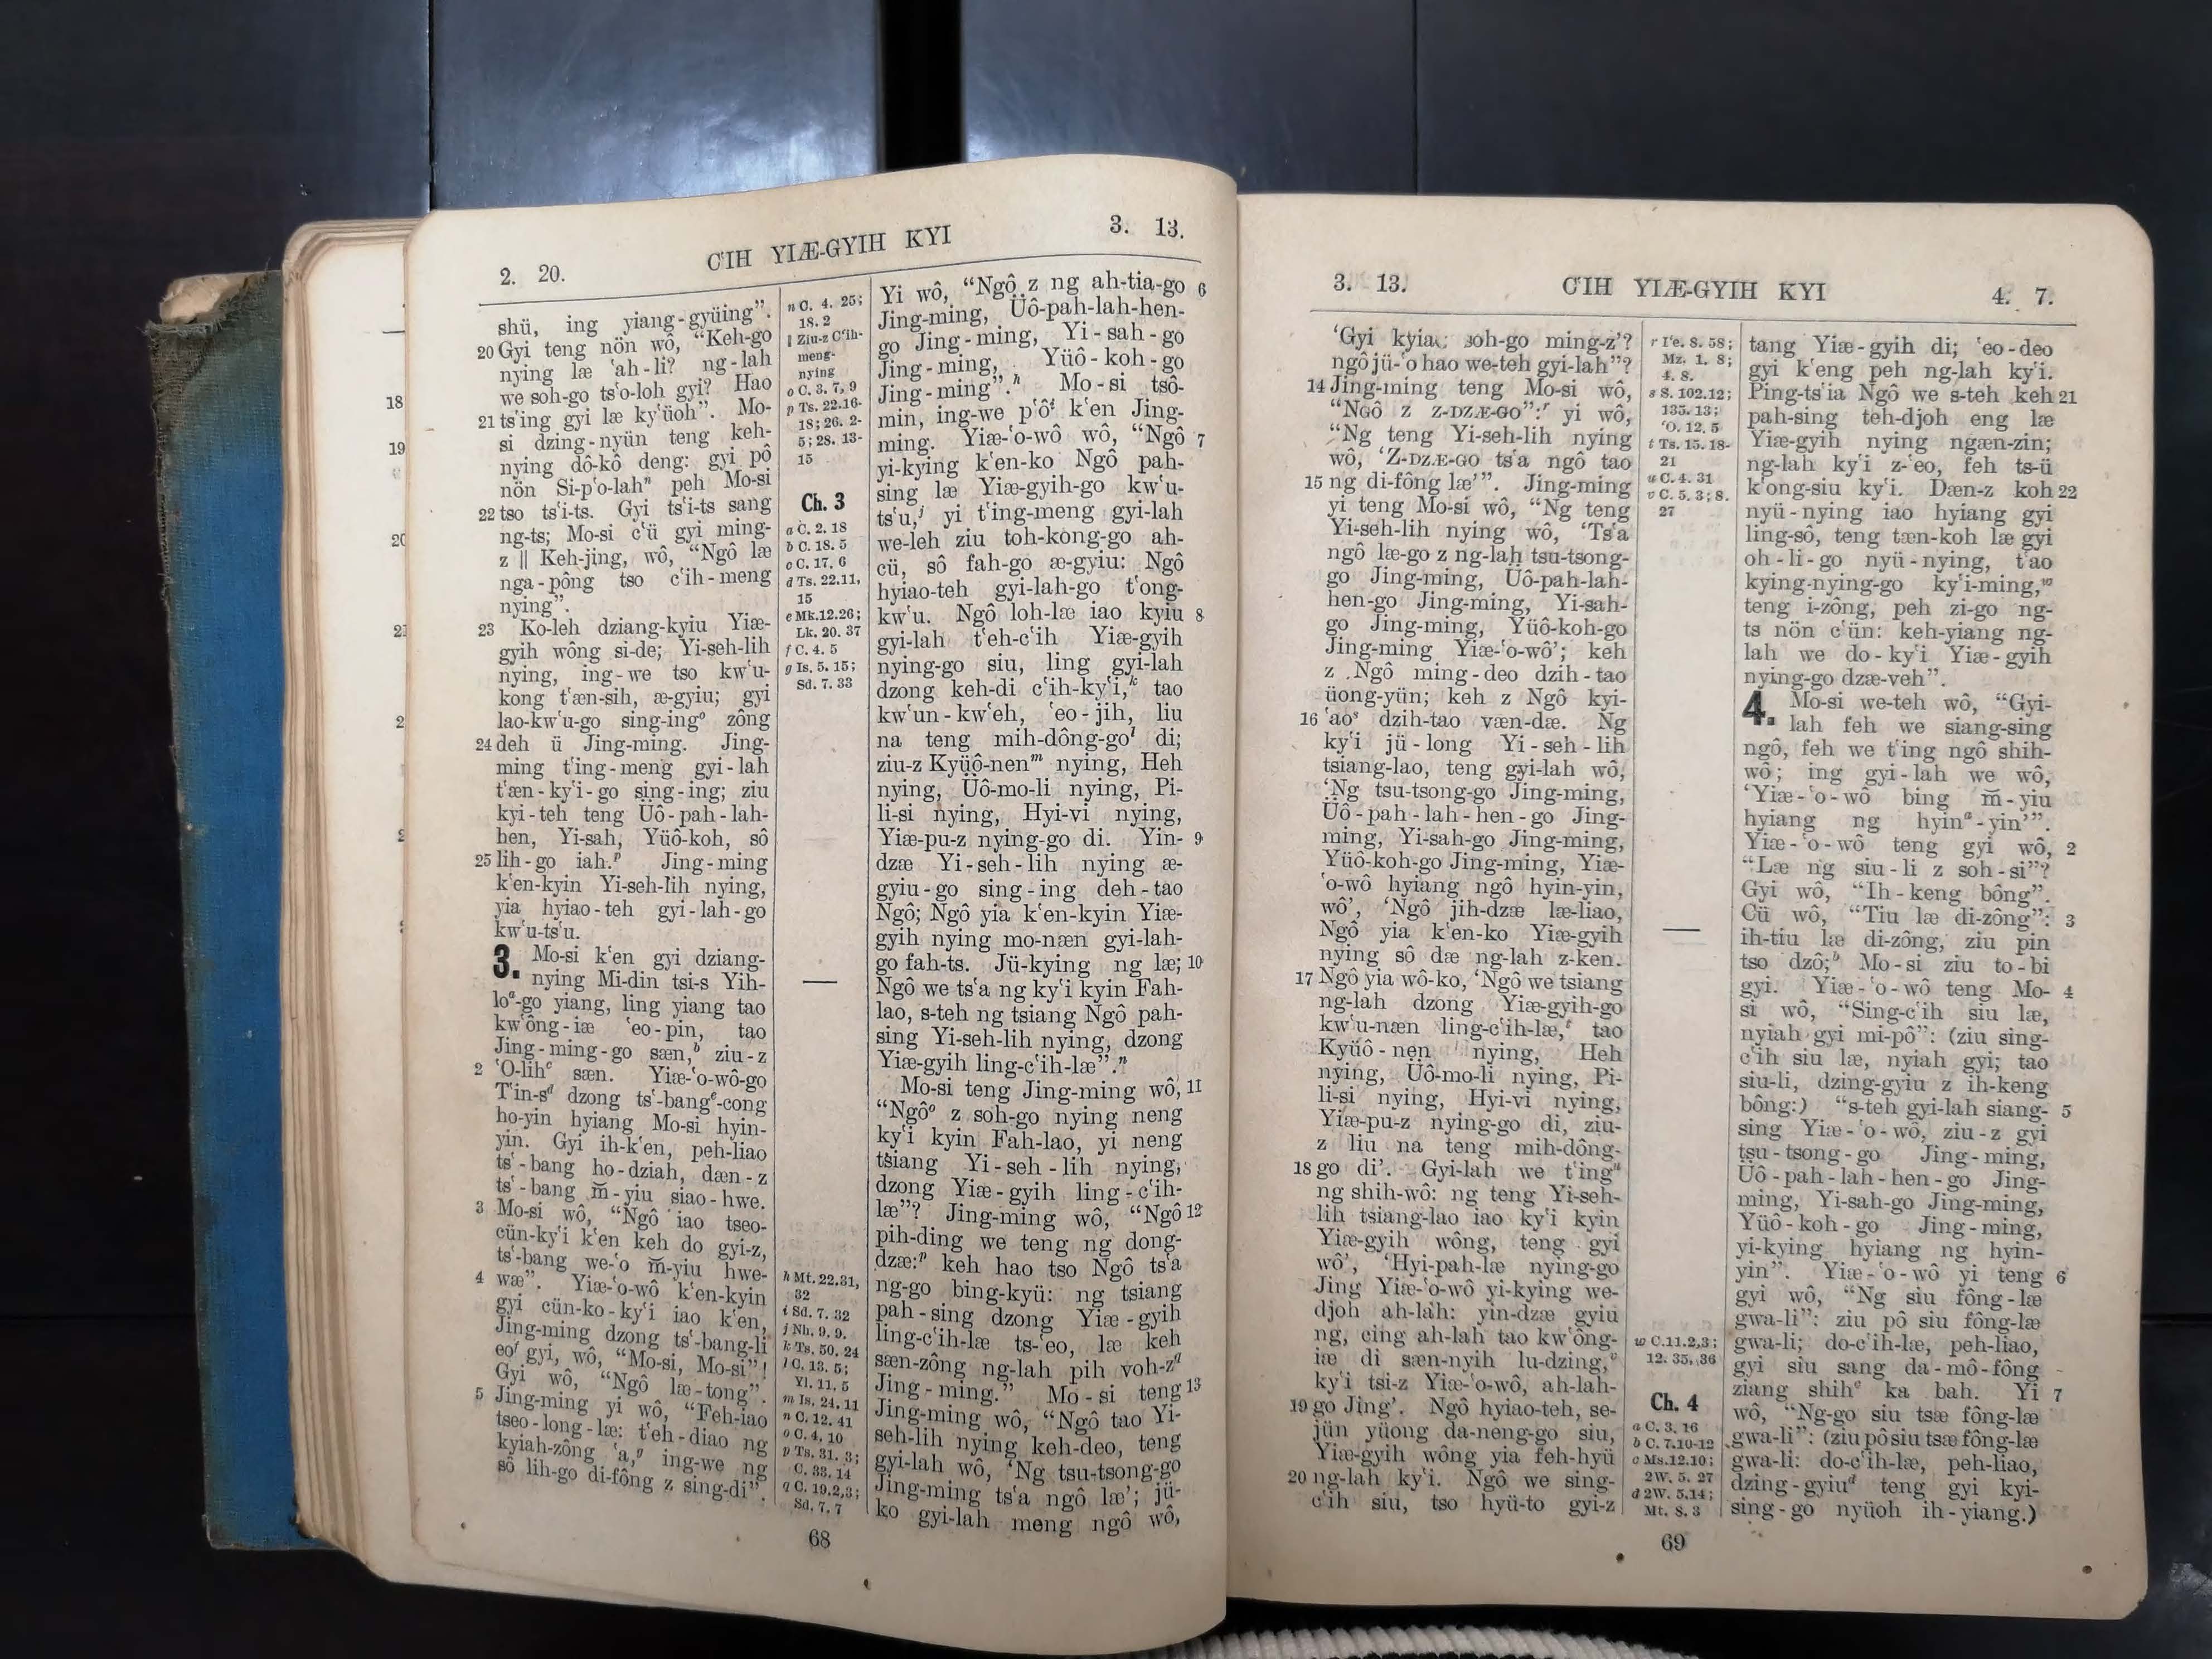 2. 20.
CʻIH YIÆ-GYIH KYI
3. 13.
shü, ing yiang-gyüing”.
20 Gyi teng nön wô, “Keh-go
nying læ ʻah-li? ng-lah
we soh-go tsʻo-loh gyi? Hao
21 tsʻing gyi læ kyʻüoh”. Mo-
si dzing-nyün teng keh-
nying dô-kô deng: gyi pô
nön Si-pʻo-lahⁿ peh Mo-si
22 tso tsʻi-ts. Gyi tsʻi-ts sang
ng-ts; Mo-si cʻü gyi ming-
z ‖ Keh-jing, wô, “Ngô læ
nga-pông tso cʻih-meng
nying”.
23 Ko-leh dziang-kyiu Yiæ-
gyih wông si-de; Yi-seh-lih
nying, ing-we tso kwʻu-
kong tʻæn-sih, æ-gyiu; gyi
lao-kwʻu-go sing-ingᵒ zông
24 deh ü Jing-ming. Jing-
ming tʻing-meng gyi-lah
tʻæn-kyʻi-go sing-ing; ziu
kyi-teh teng Üô-pah-lah-
hen, Yi-sah, Yüô-koh, sô
25 lih-go iah.ᵖ Jing-ming
kʻen-kyin Yi-seh-lih nying,
yia hyiao-teh gyi-lah-go
kwʻu-tsʻu.
3. Mo-si kʻen gyi dziang-
nying Mi-din tsi-s Yih-
loᵃ-go yiang, ling yiang tao
kwʻông-iæ ʻeo-pin, tao
Jing-ming-go sæn,ᵇ ziu-z
2 ʻO-lihᶜ sæn. Yiæ-ʻo-wô-go
Tʻin-sᵈ dzong tsʻ-bangᵉ-cong
ho-yin hyiang Mo-si hyin-
yin. Gyi ih-kʻen, peh-liao
tsʻ-bang ho-dziah, dæn-z
tsʻ-bang m̆-yiu siao-hwe.
3 Mo-si wô, “Ngô iao tseo-
cün-kyʻi kʻen keh do gyi-z,
tsʻ-bang we-ʻo m̆-yiu hwe-
4 wæ”. Yiæ-ʻo-wô kʻen-kyin
gyi cün-ko-kyʻi iao kʻen,
Jing-ming dzong tsʻ-bang-li
eoᶠ gyi, wô, “Mo-si, Mo-si”!
Gyi wô, “Ngô læ-tong”.
5 Jing-ming yi wô, “Feh-iao
tseo-long-læ: tʻeh-diao ng
kyiah-zông ʻa,ᵍ ing-we ng
sô lih-go di-fông z sing-di”.
n C. 4. 25;
18. 2
‖ Ziu-z Cʻih-
meng-
nying
o C. 3. 7, 9
p Ts. 22.16-
18; 26. 2-
5; 28. 13-
15
Ch. 3
a C. 2. 18
b C. 18. 5
c C. 17. 6
d Ts. 22.11,
15
e Mk.12.26;
Lk. 20. 37
f C. 4. 5
g Is. 5. 15;
Sd. 7. 33
h Mt. 22.31,
32
i Sd. 7. 32
j Nh. 9. 9.
k Ts. 50. 24
l C. 13. 5;
Yl. 11. 5
m Is. 24. 11
n C. 12. 41
o C. 4, 10
p Ts. 31. 3;
C. 33. 14
q C. 19.2,3;
Sd. 7. 7
Yi wô, “Ngô z ng ah-tia-go 6
Jing-ming, Üô-pah-lah-hen-
go Jing-ming, Yi-sah-go
Jing-ming, Yüô-koh-go
Jing-ming”.ʰ Mo-si tsô-
min, ing-we pʻôⁱ kʻen Jing-
ming. Yiæ-ʻo-wô wô, “Ngô 7
yi-kying kʻen-ko Ngô pah-
sing læ Yiæ-gyih-go kwʻu-
tsʻu,ʲ yi tʻing-meng gyi-lah
we-leh ziu toh-kong-go ah-
cü, sô fah-go æ-gyiu: Ngô
hyiao-teh gyi-lah-go tʻong-
kwʻu. Ngô loh-læ iao kyiu 8
gyi-lah tʻeh-cʻih Yiæ-gyih
nying-go siu, ling gyi-lah
dzong keh-di cʻih-kyʻi,ᵏ tao
kwʻun-kwʻeh, ʻeo-jih, liu
na teng mih-dông-goˡ di;
ziu-z Kyüô-nenᵐ nying, Heh
nying, Üô-mo-li nying, Pi-
li-si nying, Hyi-vi nying,
Yiæ-pu-z nying-go di. Yin- 9
dzæ Yi-seh-lih nying æ-
gyiu-go sing-ing deh-tao
Ngô; Ngô yia kʻen-kyin Yiæ-
gyih nying mo-næn gyi-lah-
go fah-ts. Jü-kying ng læ; 10
Ngô we tsʻa ng kyʻi kyin Fah-
lao, s-teh ng tsiang Ngô pah-
sing Yi-seh-lih nying, dzong
Yiæ-gyih ling-cʻih-læ”.ⁿ
Mo-si teng Jing-ming wô, 11
“Ngôᵒ z soh-go nying neng
kyʻi kyin Fah-lao, yi neng
tsiang Yi-seh-lih nying,
dzong Yiæ-gyih ling-cʻih-
læ”? Jing-ming wô, “Ngô 12
pih-ding we teng ng dong-
dzæ:ᵖ keh hao tso Ngô tsʻa
ng-go bing-kyü: ng tsiang
pah-sing dzong Yiæ-gyih
ling-cʻih-læ ts-ʻeo, læ keh
sæn-zông ng-lah pih voh-z𐞥
Jing-ming.” Mo-si teng 13
Jing-ming wô, “Ngô tao Yi-
seh-lih nying keh-deo, teng
gyi-lah wô, ‘Ng tsu-tsong-go
Jing-ming tsʻa ngô læ’; jü-
ko gyi-lah meng ngô wô,
68
3. 13.
CʻIH YIÆ-GYIH KYI
4. 7.
‘Gyi kyiao soh-go ming-z’?
ngô jü-ʻo hao we-teh gyi-lah”?
14 Jing-ming teng Mo-si wô,
“NGÔ Z Z-DZÆ-GO”:ʳ yi wô,
“Ng teng Yi-seh-lih nying
wô, ‘Z-DZÆ-GO tsʻa ngô tao
15 ng di-fông læ’”. Jing-ming
yi teng Mo-si wô, “Ng teng
Yi-seh-lih nying wô, ‘Tsʻa
ngô læ-go z ng-lah tsu-tsong-
go Jing-ming, Üô-pah-lah-
hen-go Jing-ming, Yi-sah-
go Jing-ming, Yüô-koh-go
Jing-ming Yiæ-ʻo-wô’; keh
z Ngô ming-deo dzih-tao
üong-yün; keh z Ngô kyi-
16 ʻaoˢ dzih-tao væn-dæ. Ng
kyʻi jü-long Yi-seh-lih
tsiang-lao, teng gyi-lah wô,
‘Ng tsu-tsong-go Jing-ming,
Üô-pah-lah-hen-go Jing-
ming, Yi-sah-go Jing-ming,
Yüô-koh-go Jing-ming, Yiæ-
ʻo-wô hyiang ngô hyin-yin,
wô’, ‘Ngô jih-dzæ læ-liao,
Ngô yia kʻen-ko Yiæ-gyih
nying sô dæ ng-lah z-ken.
17 Ngô yia wô-ko, ‘Ngô we tsiang
ng-lah dzong Yiæ-gyih-go
kwʻu-næn ling-cʻih-læ,ᵗ tao
Kyüô-nen nying, Heh
nying, Üô-mo-li nying, Pi-
li-si nying, Hyi-vi nying,
Yiæ-pu-z nying-go di, ziu-
z liu na teng mih-dông-
18 go di’. Gyi-lah we tʻingᵘ
ng shih-wô: ng teng Yi-seh-
lih tsiang-lao iao kyʻi kyin
Yiæ-gyih wông, teng gyi
wô’, ‘Hyi-pah-læ nying-go
Jing Yiæ-ʻo-wô yi-kying we-
djoh ah-lah: yin-dzæ gyiu
ng, cing ah-lah tao kwʻông-
iæ di sæn-nyih lu-dzing,ᵛ
kyʻi tsi-z Yiæ-ʻo-wô, ah-lah-
19 go Jing’. Ngô hyiao-teh, se-
jün yüong da-neng-go siu,
Yiæ-gyih wông yia feh-hyü
20 ng-lah kyʻi. Ngô we sing-
cʻih siu, tso hyü-to gyi-z
r Iʻe. 8. 58;
Mz. 1. 8;
4. 8.
s S. 102.12;
135. 13;
ʻO. 12. 5
t Ts. 15. 18-
21
u C. 4. 31
v C. 5. 3; 8.
27
w C.11.2,3;
12. 35, 36
Ch. 4
a C. 3. 16
b C. 7.10-12
c Ms.12.10;
2W. 5. 27
d 2W. 5.14;
Mt. 8. 3
tang Yiæ-gyih di; ʻeo-deo
gyi kʻeng peh ng-lah kyʻi.
Ping-tsʻia Ngô we s-teh keh 21
pah-sing teh-djoh eng læ
Yiæ-gyih nying ngæn-zin;
ng-lah kyʻi z-ʻeo, feh ts-ü
kʻong-siu kyʻi. Dæn-z koh 22
nyü-nying iao hyiang gyi
ling-sô, teng tæn-koh læ gyi
oh-li-go nyü-nying, tʻao
kying-nying-go kyʻi-ming,ʷ
teng i-zông, peh zi-go ng-
ts nön cʻün: keh-yiang ng-
lah we do-kyʻi Yiæ-gyih
nying-go dzæ-veh”.
4. Mo-si we-teh wô, “Gyi-
lah feh we siang-sing
ngô, feh we tʻing ngô shih-
wô; ing gyi-lah we wô,
‘Yiæ-ʻo-wô bing m̆-yiu
hyiang ng hyinᵃ-yin’”.
Yiæ-ʻo-wô teng gyi wô, 2
“Læ ng siu-li z soh-si”?
Gyi wô, “Ih-keng bông”.
Cü wô, “Tiu læ di-zông”: 3
ih-tiu læ di-zông, ziu pin
tso dzô;ᵇ Mo-si ziu to-bi
gyi. Yiæ-ʻo-wô teng Mo- 4
si wô, “Sing-cʻih siu læ,
nyiah gyi mi-pô”: (ziu sing-
cʻih siu læ, nyiah gyi; tao
siu-li, dzing-gyiu z ih-keng
bông:) “s-teh gyi-lah siang- 5
sing Yiæ-ʻo-wô, ziu-z gyi
tsu-tsong-go Jing-ming,
Üô-pah-lah-hen-go Jing-
ming, Yi-sah-go Jing-ming,
Yüô-koh-go Jing-ming,
yi-kying hyiang ng hyin-
yin”. Yiæ-ʻo-wô yi teng 6
gyi wô, “Ng siu fông-læ
gwa-li”: ziu pô siu fông-læ
gwa-li; do-cʻih-læ, peh-liao,
gyi siu sang da-mô-fông
ziang shihᶜ ka bah. Yi 7
wô, “Ng-go siu tsæ fông-læ
gwa-li”: (ziu pô siu tsæ fông-læ
gwa-li: do-cʻih-læ, peh-liao,
dzing-gyiuᵈ teng gyi kyi-
sing-go nyüoh ih-yiang.)
69